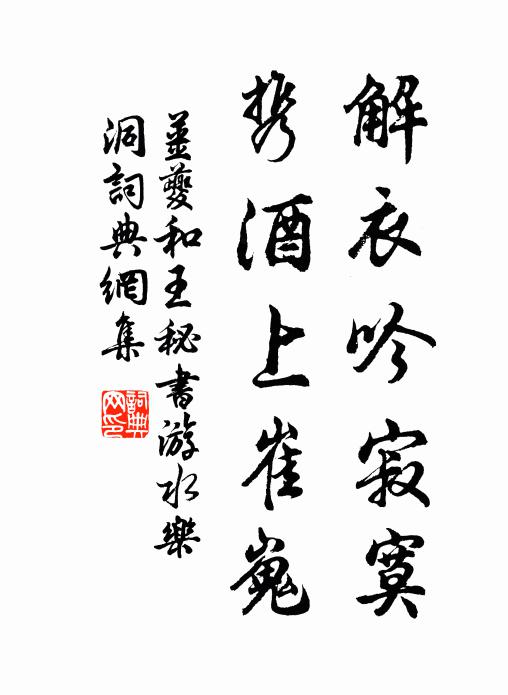 解衣吟寂寞
携酒上崔嵬
姜夔和王秘書游水樂
洞詞典網集
詞典网印